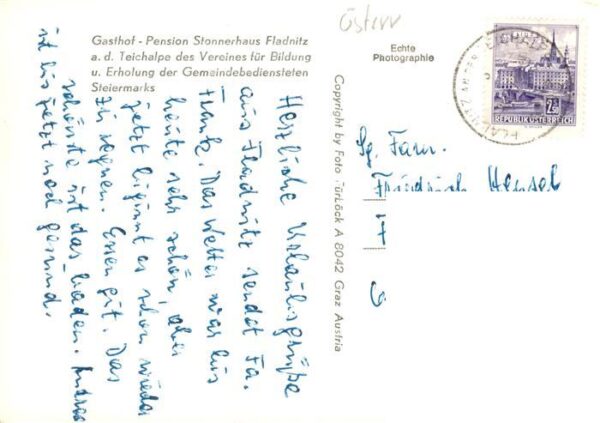 Gasthof - Pension Stonnerhaus Fladnitz
a. d. Teichalpe des Vereines für Bildung
u. Erholung der Gemeindebediensteten
Steiermarks
Österr
Echte
Photographie
REPUBLIK ÖSTERREICH
Herzliche Urlaubsgrüße
aus Fladnitz sendet Fa.
Das Wetter war bis
heute sehr schön, aber
jetzt beginnt es schon wieder
zu regnen. Essen gut. Das
schönste ist das baden.
ist bis jetzt noch gesund.
Copyright by Foto Turlöck A 8042 Graz Austria
Fam.
Friedrich Hensel